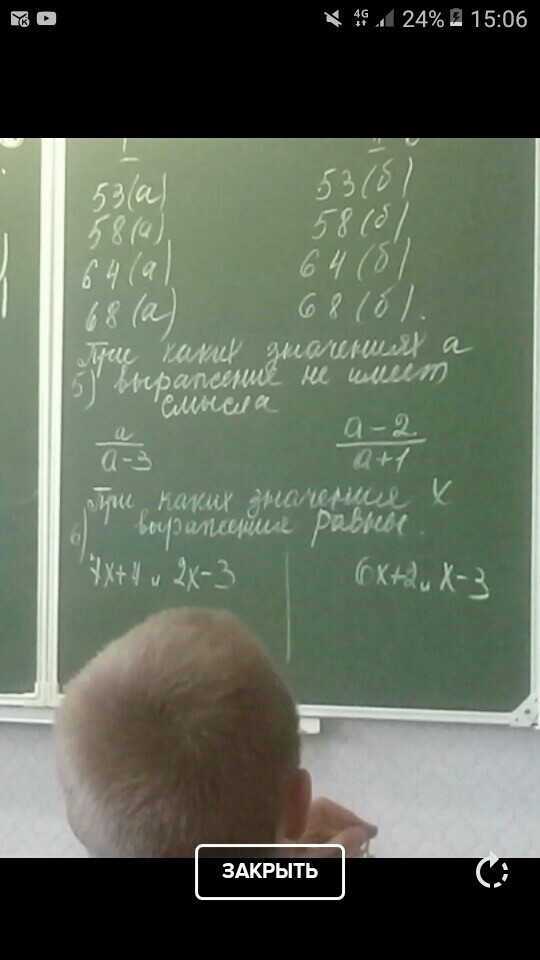 4G 24% 15:06
I
53(а) 53(б)
58(а) 58(б)
64(а) 64(б)
68(а) 68(б).
При каких значениях а
5) выражение не имеет
смысла
a/(a-3) (a-2)/(a+1)
При каких значения х
6) выражения равны.
7x+4 и 2x-3 6x+2 и x-3
ЗАКРЫТЬ